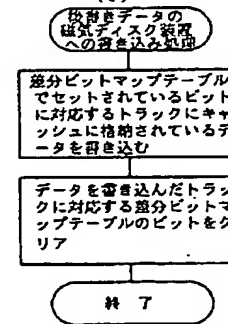 後書きデータの
磁気ディスク装置
への書き込み処理
差分ビットマップテーブル
でセットされているビット
に対応するトラックにキャ
ッシュに格納されているデ
ータを書き込む
データを書き込んだトラッ
クに対応する差分ビットマ
ップテーブルのビットをク
リア
終 了